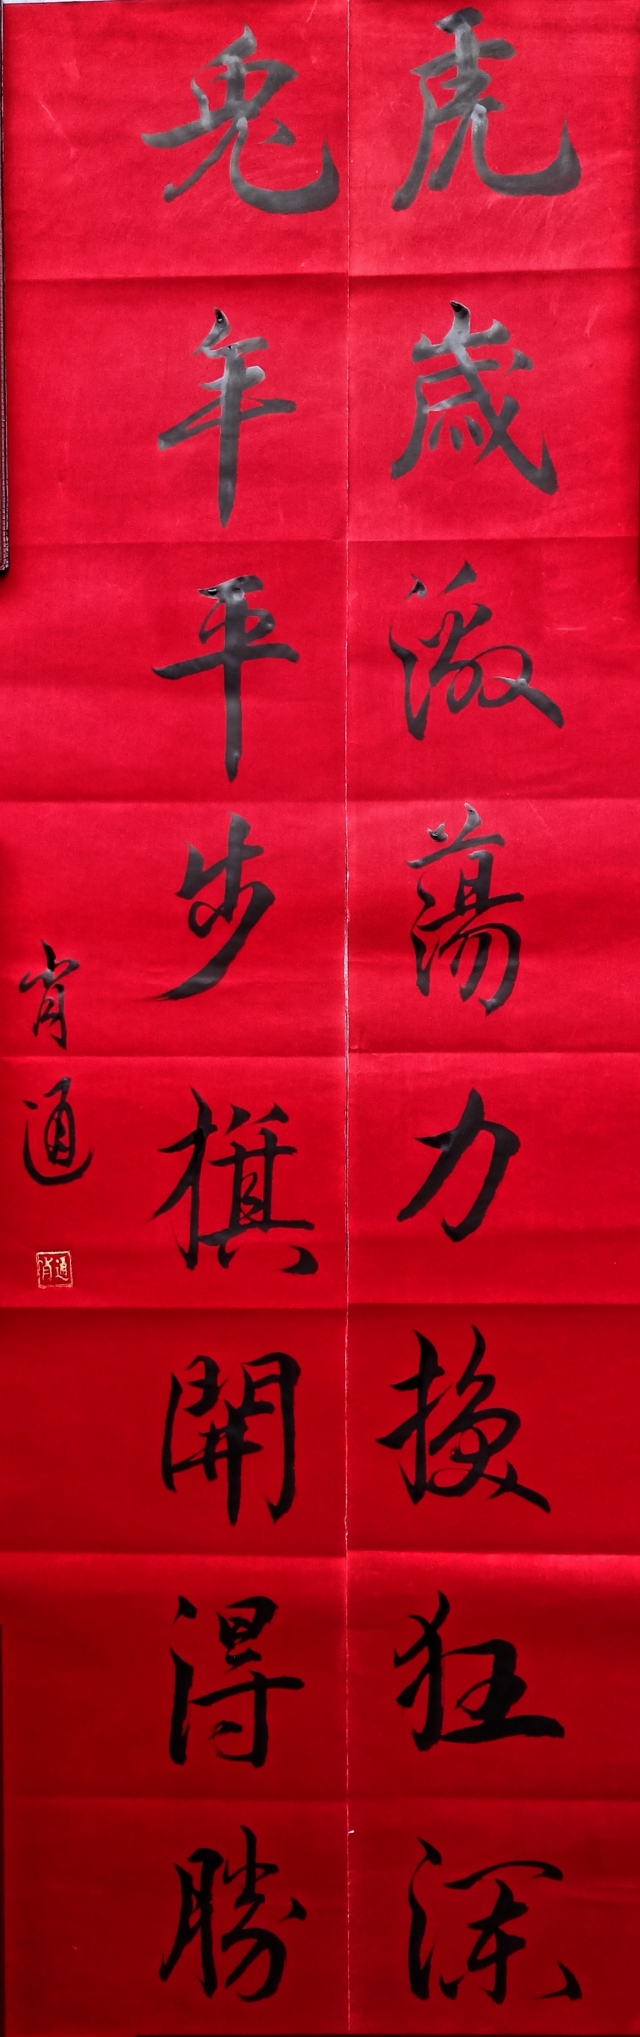 虎歲激蕩力挽狂瀾
兔年平步旗開得勝
肖通
肖通